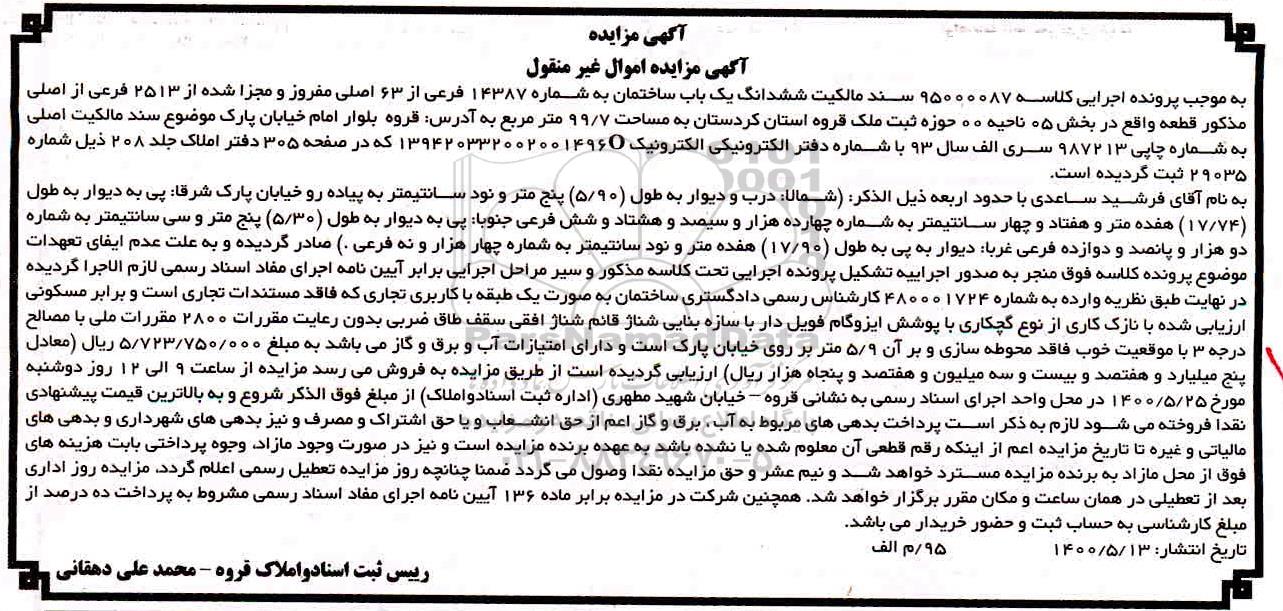 آگهی مزایده
آگهی مزایده اموال غیر منقول
به موجب پرونده اجرایی کلاسه ۹۵۰۰۰۰۸۷ سند مالکیت ششدانگ یک باب ساختمان به شماره ۱۴۳۸۷ فرعی از ۶۳ اصلی مفروز و مجزا شده از ۲۵۱۳ فرعی از اصلی
مذکور قطعه واقع در بخش ۰۵ ناحیه ۰۰ حوزه ثبت ملک قروه استان کردستان به مساحت ۹۹/۷ متر مربع به آدرس: قروه بلوار امام خیابان پارک موضوع سند مالکیت اصلی
به شماره چاپی ۹۸۷۲۱۳ سری الف سال ۹۳ با شماره دفتر الکترونیکی الکترونیک ۱۳۹۴۲۰۳۳۲۰۰۲۰۰۱۴۹۶O که در صفحه ۳۰۵ دفتر املاک جلد ۲۰۸ ذیل شماره
۲۹۰۳۵ ثبت گردیده است.
به نام آقای فرشید ساعدی با حدود اربعه ذیل الذکر: (شمالا: درب و دیوار به طول (۵/۹۰) پنج متر و نود سانتیمتر به پیاده رو خیابان پارک شرقا: پی به دیوار به طول
(۱۷/۷۴) هفده متر و هفتاد و چهار سانتیمتر به شماره چهارده هزار و سیصد و هشتاد و شش فرعی جنوبا: پی به دیوار به طول (۵/۳۰) پنج متر و سی سانتیمتر به شماره
دو هزار و پانصد و دوازده فرعی غربا: دیوار به پی به طول (۱۷/۹۰) هفده متر و نود سانتیمتر به شماره چهار هزار و نه فرعی .) صادر گردیده و به علت عدم ایفای تعهدات
موضوع پرونده کلاسه فوق منجر به صدور اجراییه تشکیل پرونده اجرایی تحت کلاسه مذکور و سیر مراحل اجرایی برابر آیین نامه اجرای مفاد اسناد رسمی لازم الاجرا گردیده
در نهایت طبق نظریه وارده به شماره ۴۸۰۰۰۱۷۲۴ کارشناس رسمی دادگستری ساختمان به صورت یک طبقه با کاربری تجاری که فاقد مستندات تجاری است و برابر مسکونی
ارزیابی شده با نازک کاری از نوع گچکاری با پوشش ایزوگام فویل دار با سازه بنایی شناژ قائم شناژ افقی سقف طاق ضربی بدون رعایت مقررات ۲۸۰۰ مقررات ملی با مصالح
درجه ۳ با موقعیت خوب فاقد محوطه سازی و بر آن ۵/۹ متر بر روی خیابان پارک است و دارای امتیازات آب و برق و گاز می باشد به مبلغ ۵/۷۲۳/۷۵۰/۰۰۰ ریال (معادل
پنج میلیارد و هفتصد و بیست و سه میلیون و هفتصد و پنجاه هزار ریال) ارزیابی گردیده است از طریق مزایده به فروش می رسد مزایده از ساعت ۹ الی ۱۲ روز دوشنبه
مورخ ۱۴۰۰/۵/۲۵ در محل واحد اجرای اسناد رسمی به نشانی قروه – خیابان شهید مطهری (اداره ثبت اسنادواملاک) از مبلغ فوق الذکر شروع و به بالاترین قیمت پیشنهادی
نقدا فروخته می شود لازم به ذکر است پرداخت بدهی های مربوط به آب، برق و گاز اعم از حق انشعاب و یا حق اشتراک و مصرف و نیز بدهی های شهرداری و بدهی های
مالیاتی و غیره تا تاریخ مزایده اعم از اینکه رقم قطعی آن معلوم شده یا نشده باشد به عهده برنده مزایده است و نیز در صورت وجود مازاد، وجوه پرداختی بابت هزینه های
فوق از محل مازاد به برنده مزایده مسترد خواهد شد و نیم عشر و حق مزایده نقدا وصول می گردد ضمنا چنانچه روز مزایده تعطیل رسمی اعلام گردد، مزایده روز اداری
بعد از تعطیلی در همان ساعت و مکان مقرر برگزار خواهد شد. همچنین شرکت در مزایده برابر ماده ۱۳۶ آیین نامه اجرای مفاد اسناد رسمی مشروط به پرداخت ده درصد از
مبلغ کارشناسی به حساب ثبت و حضور خریدار می باشد.
تاریخ انتشار: ۱۴۰۰/۵/۱۳ ۹۵/م الف
رییس ثبت اسنادواملاک قروه – محمد علی دهقانی
ParsNamadData
۰۲۱-۸۸۳۴۹۶۷۰-۵